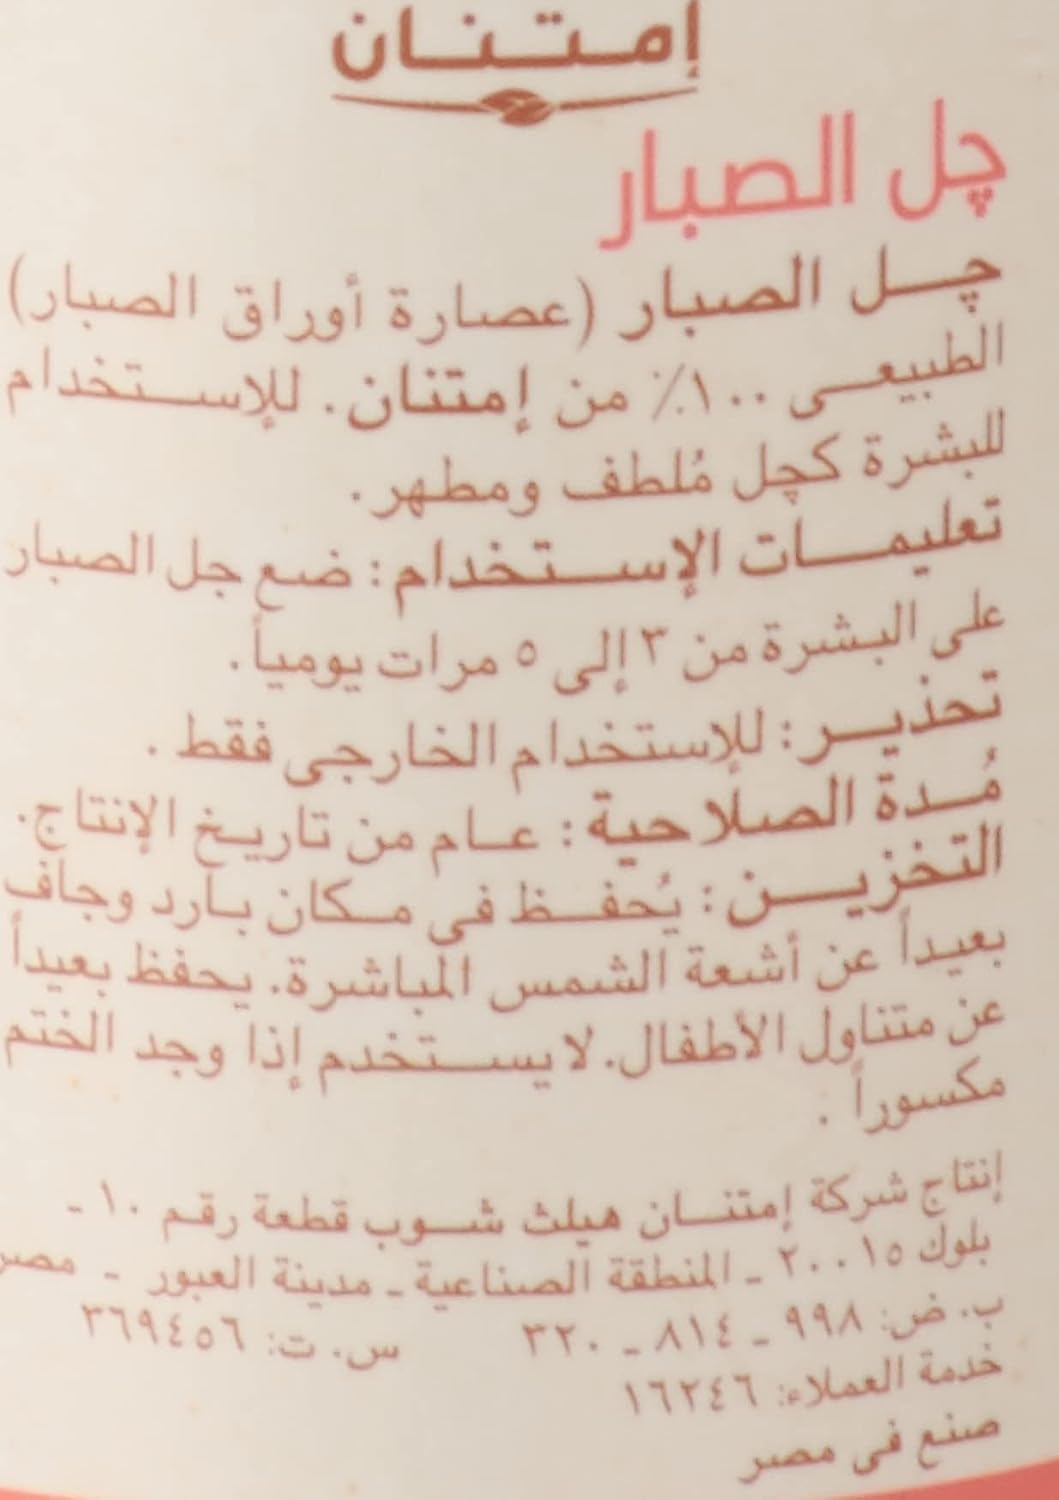 إمتنان
چل الصبار
چل الصبار (عصارة أوراق الصبار)
الطبيعى ١٠٠٪ من إمتنان. للإستخدام
للبشرة كچل مُلطف ومطهر.
تعليمات الإستخدام: ضع جل الصبار
على البشرة من ٣ إلى ٥ مرات يومياً.
تحذير: للإستخدام الخارجى فقط.
مُدة الصلاحية: عام من تاريخ الإنتاج.
التخزين: يُحفظ في مكان بارد وجاف
بعيداً عن أشعة الشمس المباشرة. يحفظ بعيداً
عن متناول الأطفال. لا يستخدم إذا وجد الختم
مكسوراً.
إنتاج شركة إمتنان هيلث شوب قطعة رقم ١٠ -
بلوك ٢٠٠١٥ - المنطقة الصناعية - مدينة العبور - مصر
ب. ض: ٩٩٨ - ٨١٤ - ٣٢٠ س. ت: ٣٦٩٤٥٦
خدمة العملاء: ١٦٢٤٦
صنع فى مصر